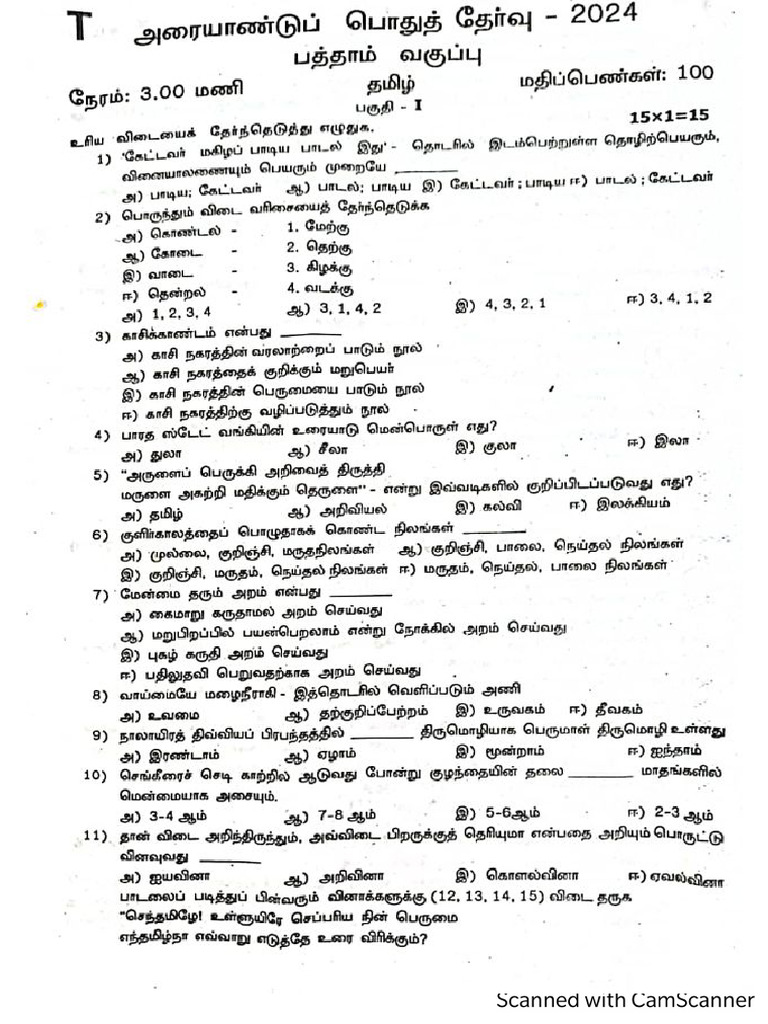 T அரையாண்டுப் பொதுத் தேர்வு - 2024
பத்தாம் வகுப்பு
நேரம்: 3.00 மணி தமிழ் மதிப்பெண்கள்: 100
பகுதி - I
உரிய விடையைக் தேர்ந்தெடுத்து எழுதுக. 15×1=15
1) 'கேட்டவர் மகிழப் பாடிய பாடல் இது' - தொடரில் இடம்பெற்றுள்ள தொழிற்பெயரும்,
வினையாலணையும் பெயரும் முறையே ________
அ) பாடிய; கேட்டவர் ஆ) பாடல்; பாடிய இ) கேட்டவர் ; பாடிய ஈ) பாடல் ; கேட்டவர்
2) பொருந்தும் விடை வரிசையைத் தேர்ந்தெடுக்க
அ) கொண்டல் - 1. மேற்கு
ஆ) கோடை - 2. தெற்கு
இ) வாடை - 3. கிழக்கு
ஈ) தென்றல் - 4. வடக்கு
அ) 1, 2, 3, 4 ஆ) 3, 1, 4, 2 இ) 4, 3, 2, 1 ஈ) 3, 4, 1, 2
3) காசிக்காண்டம் என்பது ________
அ) காசி நகரத்தின் வரலாற்றைப் பாடும் நூல்
ஆ) காசி நகரத்தைக் குறிக்கும் மறுபெயர்
இ) காசி நகரத்தின் பெருமையை பாடும் நூல்
ஈ) காசி நகரத்திற்கு வழிப்படுத்தும் நூல்
4) பாரத ஸ்டேட் வங்கியின் உரையாடு மென்பொருள் எது?
அ) துலா ஆ) சீலா இ) குலா ஈ) இலா
5) "அருளைப் பெருக்கி அறிவைத் திருத்தி
மருளை அகற்றி மதிக்கும் தெருளை" - என்று இவ்வடிகளில் குறிப்பிடப்படுவது எது?
அ) தமிழ் ஆ) அறிவியல் இ) கல்வி ஈ) இலக்கியம்
6) குளிர்காலத்தைப் பொழுதாகக் கொண்ட நிலங்கள் ________
அ) முல்லை, குறிஞ்சி, மருதநிலங்கள் ஆ) குறிஞ்சி, பாலை, நெய்தல் நிலங்கள்
இ) குறிஞ்சி, மருதம், நெய்தல் நிலங்கள் ஈ) மருதம், நெய்தல், பாலை நிலங்கள்
7) மேன்மை தரும் அறம் என்பது ________
அ) கைமாறு கருதாமல் அறம் செய்வது
ஆ) மறுபிறப்பில் பயன்பெறலாம் என்று நோக்கில் அறம் செய்வது
இ) புகழ் கருதி அறம் செய்வது
ஈ) பதிலுதவி பெறுவதற்காக அறம் செய்வது
8) வாய்மையே மழைநீராகி - இத்தொடரில் வெளிப்படும் அணி
அ) உவமை ஆ) தற்குறிப்பேற்றம் இ) உருவகம் ஈ) தீவகம்
9) நாலாயிரத் திவ்வியப் பிரபந்தத்தில் ________ திருமொழியாக பெருமாள் திருமொழி உள்ளது
அ) இரண்டாம் ஆ) ஏழாம் இ) மூன்றாம் ஈ) ஐந்தாம்
10) செங்கீரைச் செடி காற்றில் ஆடுவது போன்று குழந்தையின் தலை ________ மாதங்களில்
மென்மையாக அசையும்.
அ) 3-4 ஆம் ஆ) 7-8 ஆம் இ) 5-6ஆம் ஈ) 2-3 ஆம்
11) தான் விடை அறிந்திருந்தும், அவ்விடை பிறருக்குத் தெரியுமா என்பதை அறியும் பொருட்டு
வினவுவது ________
அ) ஐயவினா ஆ) அறிவினா இ) கொளல்வினா ஈ) ஏவல்வினா
பாடலைப் படித்துப் பின்வரும் வினாக்களுக்கு (12, 13, 14, 15) விடை தருக
"செந்தமிழே! உள்ளுயிரே செப்பரிய நின் பெருமை
எந்தமிழ்நா எவ்வாறு எடுத்தே உரை விரிக்கும்?
Scanned with CamScanner